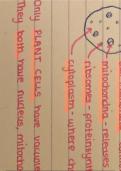 mitochondria - releases
ribosomes - protein synt
cytoplasm - where ch
Only PLANT CELLS have vacuole
They both have nucleus, mitocho